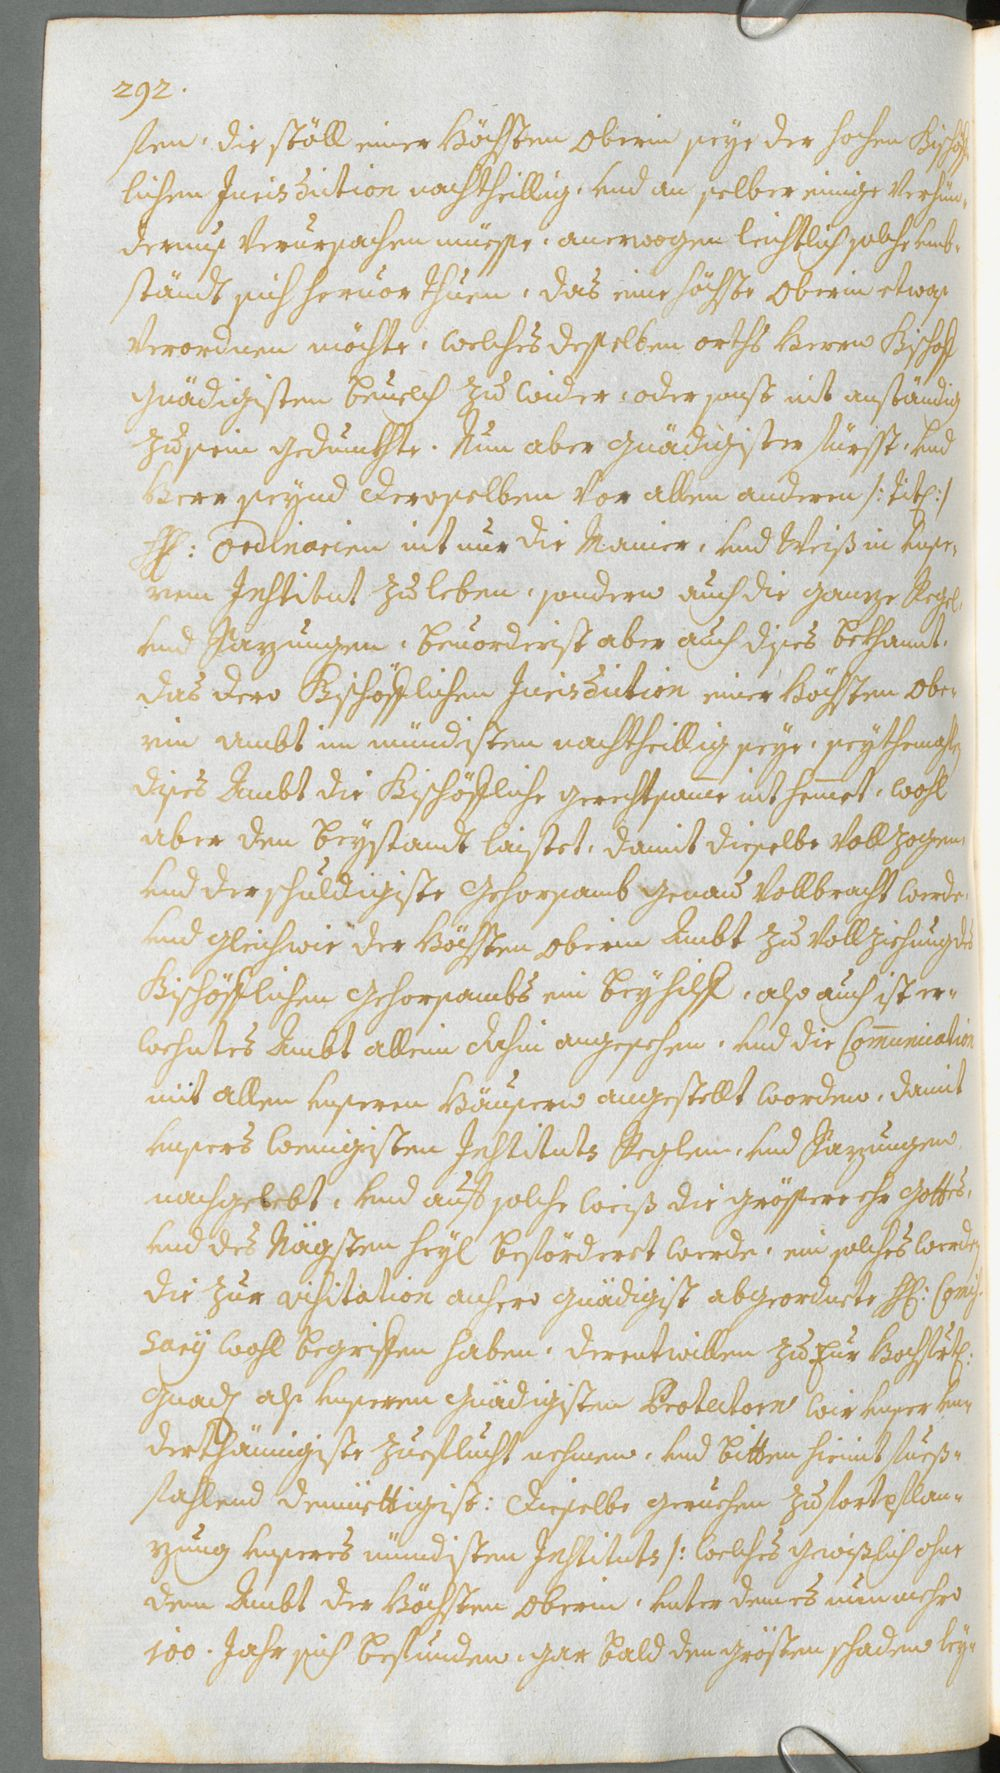 292.
sten, die stöll einer Höchsten Oberin seye der hochen Bischöff-
lichen Jurisdiction nachtheillig, und an selber einige Verhün-
dernus verursachen müesse, anerwogen leichtlich solche umb-
ständt sich heruor thuen, das eine höchste Oberin etwas
verordnen möchte, welches desselben orths Herrn Bischoff
gnädigisten beuelch zu wider, oder sonst nit anständig
zu sein gedunckhte. Nun aber gnädigister fürsst, und
Herr seynd deroselben vor allen anderen /: Titl: /
HH: Ordinarien nit nur die Manier, und Weiß in unse-
rem Institut zu leben, sondern auch die ganze Regel,
und Sazungen, beuorderist aber auch dises bekhannt,
das dero Bischöfflichen Jurisdiction einer Höchsten Obe-
rin ambt im mündisten nachtheillig seye, seythemahlen
dises Ambt die Bischöffliche gerechtsame nit hemet, wohl
aber den beystandt laistet, damit dieselbe vollzogen,
und der schuldigiste gehorsamb genau vollbracht werde,
und gleichwie der Höchsten Oberin Ambt zu vollziehung des
Bischöfflichen gehorsambs ein beyhilff, also auch ist er-
wehntes Ambt allein dahin angesehen, und die Communication
mit allen unseren Häusern angestellt worden, damit
unsers wenigisten Instituts Reglen, und Sazungen
nachgelebt, und auf solche weiß die grössere ehr Gottes,
und des Nägsten heyl befördert werde, ein solches werden
die zur visitation anhero gnädigist abgeordnete HH: Comis-
sarij wohl begriffen haben, derentwillen zu Eur Hochfürtl:
Gnad: als unseren gnädigisten Protectorn wir unser un-
derthänigiste zueflucht nehmen, und bitten hiemit fueß-
fahlend demüettigist: dieselbe geruehen zu fortpflan-
zung unseres mündisten Instituts /: welches gewißlich ohne
dem Ambt der Höchsten Oberin, unter dem es nunmehro
100. Jahr sich befunden, gar bald den grösten schaden ley-